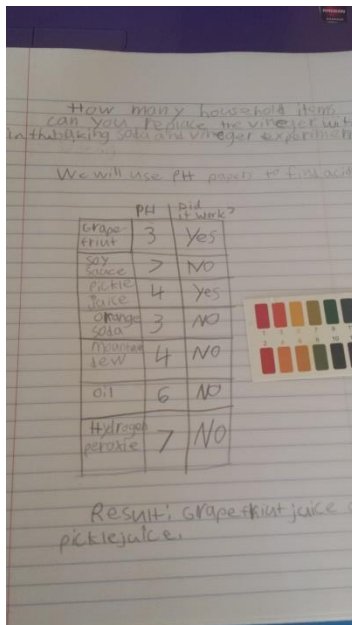 How many household item
can you replace the vineger wit
in the baking soda and vineger experime
We will use PH papers to find acid
PH Did it work?
Grape-friut 3 Yes
soy sauce 7 NO
pickle juice 4 Yes
orange soda 3 NO
mountain dew 4 NO
oil 6 NO
Hydrogen peroxie 7 NO
Result: Grapefriut juice
picklejuice.